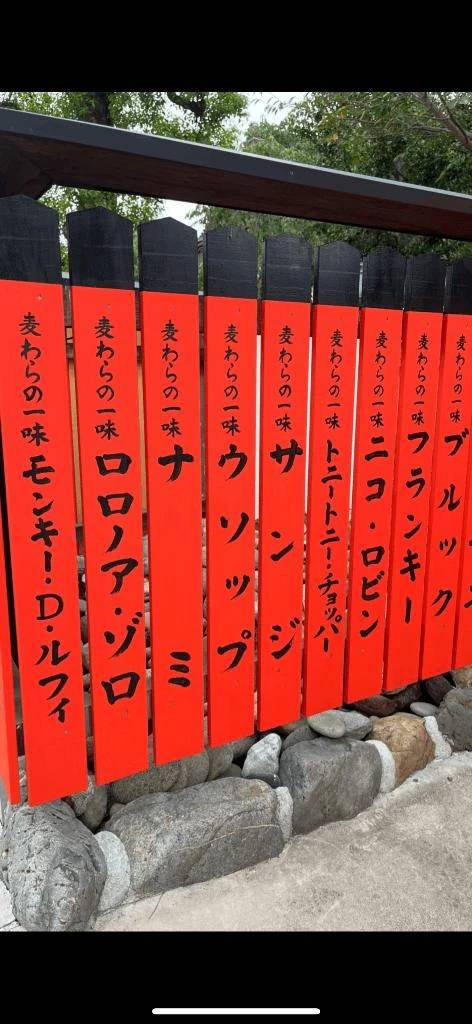 麦わらの一味 モンキー・D・ルフィ
麦わらの一味 ロロノア・ゾロ
麦わらの一味 ナミ
麦わらの一味 ウソップ
麦わらの一味 サンジ
麦わらの一味 トニートニー・チョッパー
麦わらの一味 ニコ・ロビン
麦わらの一味 フランキー
麦わらの一味 ブルック